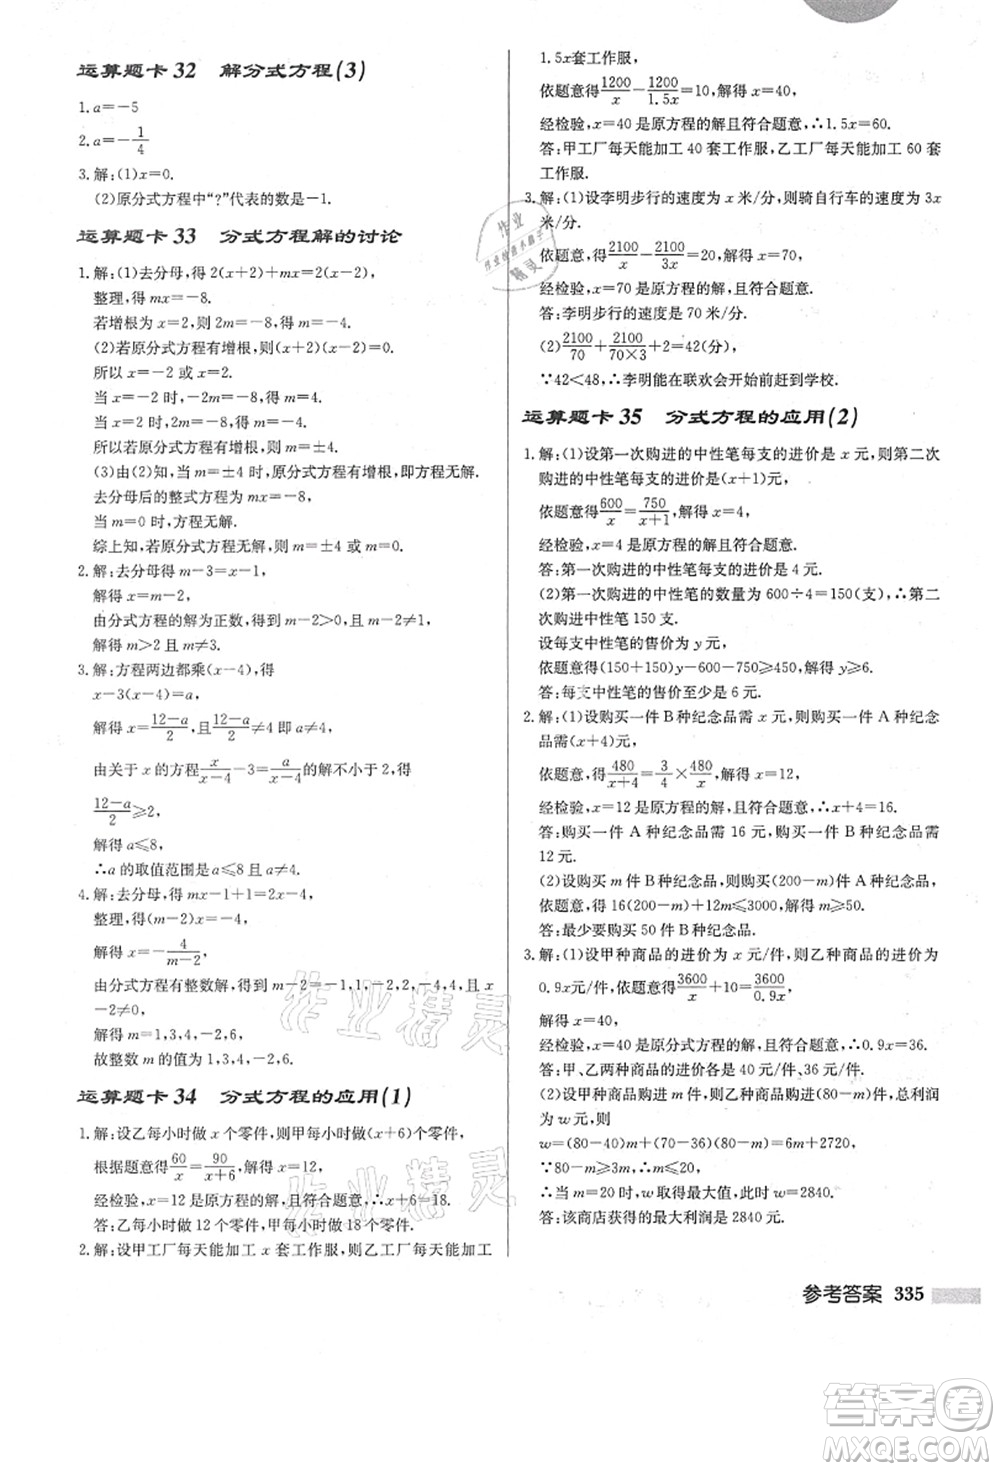 运算题卡 32　解分式方程(3)
1. a=-5
2. a=-1/4
3. 解:(1)x=0.
(2)原分式方程中“?”代表的数是-1.
运算题卡 33　分式方程解的讨论
1. 解:(1)去分母,得 2(x+2)+mx=2(x-2),
整理,得 mx=-8.
若增根为 x=2,则 2m=-8,得 m=-4.
(2)若原分式方程有增根,则(x+2)(x-2)=0.
所以 x=-2 或 x=2.
当 x=-2 时,-2m=-8,得 m=4.
当 x=2 时,2m=-8,得 m=-4.
所以若原分式方程有增根,则 m=±4.
(3)由(2)知,当 m=±4 时,原分式方程有增根,即方程无解.
去分母后的整式方程 mx=-8,
当 m=0 时,方程无解.
综上知,若原分式方程无解,则 m=±4 或 m=0.
2. 解:去分母得 m-3=x-1,
解得 x=m-2,
由分式方程的解为正数,得到 m-2>0,且 m-2≠1,
解得 m>2 且 m≠3.
3. 解:方程两边都乘(x-4),得
x-3(x-4)=a,
解得 x=(12-a)/2,且(12-a)/2≠4 即 a≠4,
由关于 x 的方程 x/(x-4)-3=a/(x-4)的解不小于 2,得
(12-a)/2≥2,
解得 a≤8,
∴a 的取值范围是 a≤8 且 a≠4.
4. 解:去分母,得 mx-1+1=2x-4,
整理,得(m-2)x=-4,
解得 x=-4/(m-2),
由分式方程有整数解,得到 m-2=-1,1,-2,2,-4,4,且 x
-2≠0,
解得 m=1,3,4,-2,6,
故整数 m 的值为 1,3,4,-2,6.
运算题卡 34　分式方程的应用(1)
1. 解:设乙每小时做 x 个零件,则甲每小时做(x+6)个零件,
根据题意得 60/x=90/(x+6),解得 x=12,
经检验,x=12 是原方程的解,且符合题意,∴x+6=18.
答:乙每小时做 12 个零件,甲每小时做 18 个零件.
2. 解:设甲工厂每天能加工 x 套工作服,则乙工厂每天能加工
1.5x套工作服,
依题意得 1200/x-1200/1.5x=10,解得 x=40,
经检验,x=40 是原方程的解且符合题意,∴1.5x=60.
答:甲工厂每天能加工 40 套工作服,乙工厂每天能加工 60 套
工作服.
3. 解:(1)设李明步行的速度为 x 米/分,则骑自行车的速度为 3x
米/分.
依题意,得 2100/x-2100/3x=20,解得 x=70,
经检验,x=70 是原方程的解且符合题意,
答:李明步行的速度是 70 米/分.
(2)2100/70+2100/(70×3)+2=42(分),
∵42<48,∴李明能在联欢会开始前赶到学校.
运算题卡 35　分式方程的应用(2)
1. 解:(1)设第一次购进的中性笔每支的进价是 x 元,则第二次
购进的中性笔每支的进价是(x+1)元,
依题意得 600/x=750/(x+1),解得 x=4,
经检验,x=4 是原方程的解且符合题意.
答:第一次购进的中性笔每支的进价是 4 元.
(2)第一次购进的中性笔的数量为 600÷4=150(支),∴第二
次购进中性笔 150 支.
设每支中性笔的售价为 y 元,
依题意得(150+150)y-600-750≥450,解得 y≥6.
答:每支中性笔的售价至少是 6 元.
2. 解:(1)设购买一件 B 种纪念品需 x 元,则购买一件 A 种纪念
品需(x+4)元,
依题意,得 480/(x+4)=3/4×480/x,解得 x=12,
经检验,x=12 是原方程的解,且符合题意,∴x+4=16.
答:购买一件 A 种纪念品需 16 元,购买一件 B 种纪念品需
12 元.
(2)设购买 m 件 B 种纪念品,则购买(200-m)件 A 种纪念品,
依题意,得 16(200-m)+12m≤3000,解得 m≥50.
答:最少要购买 50 件 B 种纪念品.
3. 解:(1)设甲种商品的进价为 x 元/件,则乙种商品的进价为
0.9x 元/件,依题意,得 3600/x+10=3600/0.9x,
解得 x=40,
经检验,x=40 是原分式方程的解,且符合题意,∴0.9x=36.
答:甲、乙两种商品的进价分别为 40 元/件、36 元/件.
(2)设甲种商品购进 m 件,则乙种商品购进(80-m)件,总利润
为 w 元,则
w=(80-40)m+(70-36)(80-m)=6m+2720,
∵80-m≥3m,∴m≤20,
∴当 m=20 时,w 取得最大值,此时 w=2840.
答:该商店获得的最大利润是 2840 元.
参考答案 335
作业精灵
作业精灵
答案卷
MXQE.COM